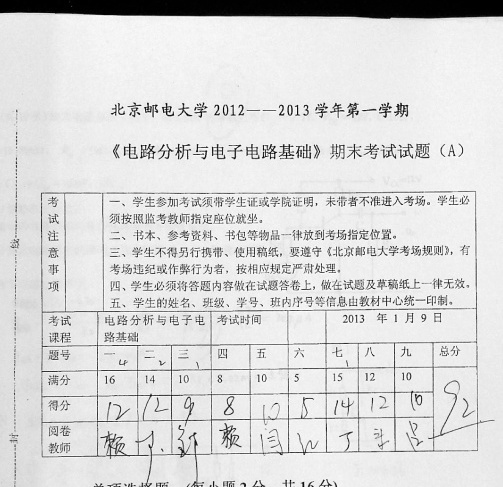 北京邮电大学 2012——2013 学年第一学期
《电路分析与电子电路基础》期末考试试题（A）
考试注意事项
一、学生参加考试须带学生证或学院证明，未带者不准进入考场。学生必
须按照监考教师指定座位就坐。
二、书本、参考资料、书包等物品一律放到考场指定位置。
三、学生不得另行携带、使用稿纸，要遵守《北京邮电大学考场规则》，有
考场违纪或作弊行为者，按相应规定严肃处理。
四、学生必须将答题内容做在试题答卷上，做在试题及草稿纸上一律无效。
五、学生的姓名、班级、学号、班内序号等信息由教材中心统一印制。
考试课程 电路分析与电子电路基础 考试时间 2013 年 1 月 9 日
题号 一 二 三 四 五 六 七 八 九 总分
4 2 1 1
满分 16 14 10 8 10 5 15 12 10
得分 12 12 9 8 10 5 14 12 10 92
阅卷教师 赖 赖 闫 丁
单项选择题 (每小题 2 分，共 16 分)